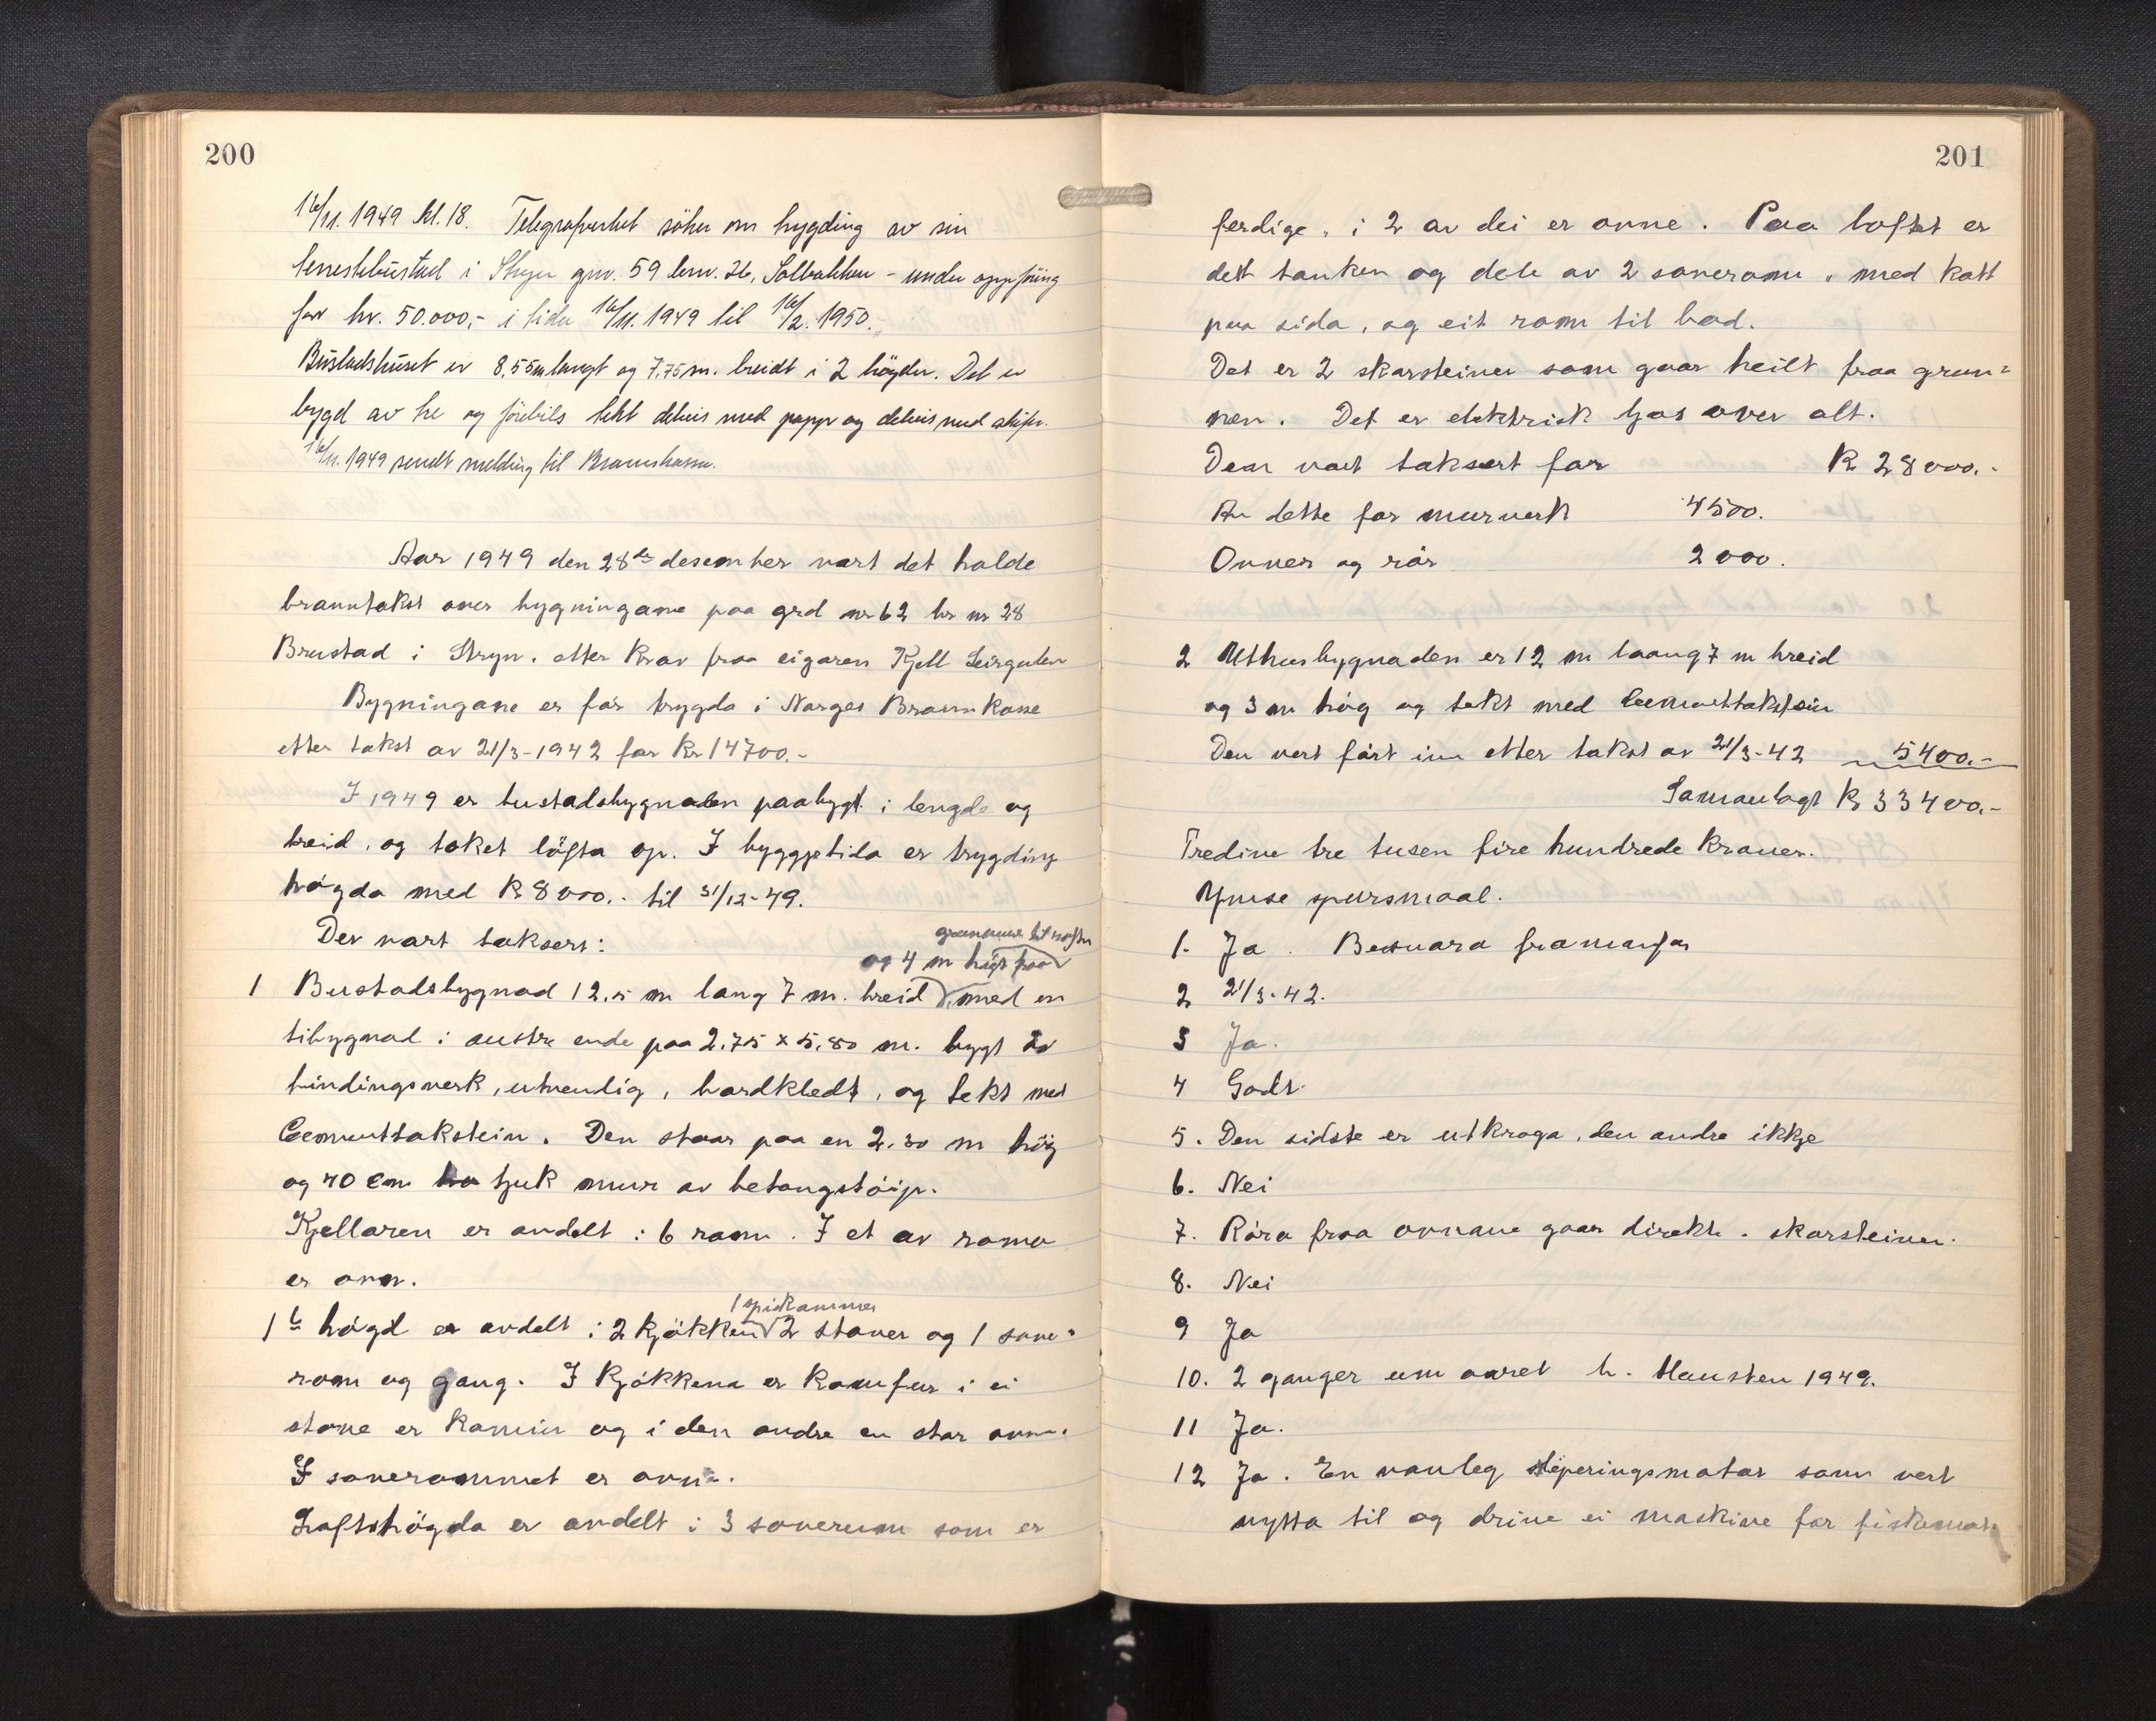 200
16/11. 1949 kl. 18. Telegrafverket söker om trygding av sin
tenestebustad i Stryn gnr. 59 bnr. 26, Solbakken - under oppföring
for kr. 50.000,- i tida 16/11. 1949 til 16/2. 1950.
Bustadshuset er 8,55m langt og 7,75 m. breidt i 2 högder. Det er
bygd av tre og förebils tekt delvis med papp og delvis med skifer.
16/11. 1949 sendt melding til Brannkassa.
Aar 1949 den 28de desember vart det halde
branntakst over bygningane paa grd nr 62 br nr 28
Brustad i Stryn. etter krav fraa eigaren Kjell Leirgulen
Bygningane er før trygda i Norges Brannkasse
etter takst av 21/3-1942 for Kr 14700.-
I 1949 er bustadsbygnaden paabygt i lengde og
breid, og taket löfta op. I byggjetida er trygding
högda med K 8000.- til 31/12-49.
Der vart taksert:
grunnmur til røstet
og 4 m høgt fraa
1 Bustadsbygnad 12,5 m lang 7 m. breid med en
tibygnad i austre ende paa 2.75 x 5.80 m. bygt av
bindingsverk, utvendig, bordkledt, og tekt med
Cementtakstein. Den staar paa en 2.30 m høg
og 40 cm tjuk mur av betongstöip.
Kjellaren er avdelt i 6 rom. I et av roma
er ovn.
1 spiskammer
1ste høgd er avdelt i 2 kjøkken 2 stover og 1 sove=
rom og gang. I kjøkkena er komfur i ei
stove er kamin og i den andre en stor ovn.
I soverommet er ovn.
Loftshøgda er avdelt i 3 soverum som er
201
ferdige, i 2 av dei er ovne. Paa loftet er
dett tanken og dele av 2 soverom, med kott
paa sida, og eit rom til bad.
Det er 2 skorsteiner som gaar heilt fraa grun=
nen. Det er elektrisk ljos over alt.
Den vart taksert for K 28000.-
Av dette for murverk 4500.
Ovner og rör 2000.
2 Uthusbygnaden er 12 m laang 7 m breid
og 3 m høg og tekt med Cementtakstein
Den vert ført inn etter takst av 21/3-42 5400.-
Samanlagt K 33400.-
Tredive tre tusen fire hundrede kroner.
Ymse spursmaal.
1. Ja.
2 21/3-42.
3 Ja.
4 Godt.
5. Den sidste er utkroga, den andre ikkje
6. Nei
7. Röra fraa ovnane gaar direkte i skorsteinen.
8. Nei
9 Ja
10. 2 ganger um aaret h. Hausten 1949.
11 Ja.
12 Ja. En vanleg motor som vert
nytta til og drive ei maskine for fiskemat